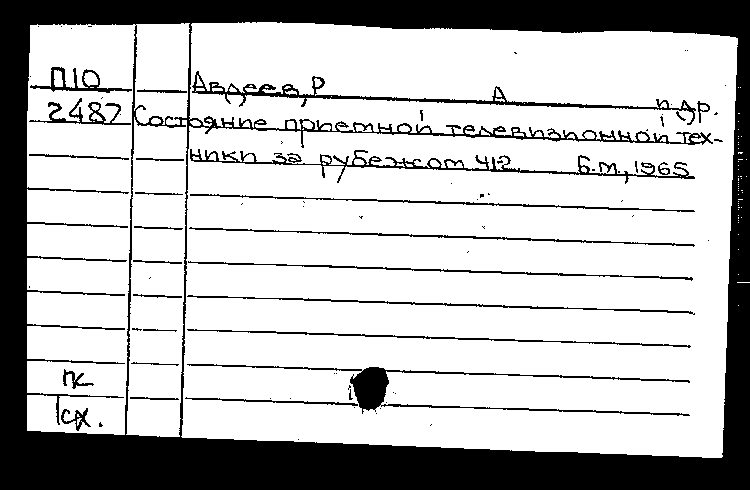 П10 Авдеев, Р А и др.
2487 Состояние приемной телевизионной тех-
ники за рубежом ч.1-2 Б.м., 1965
пк
1сх.